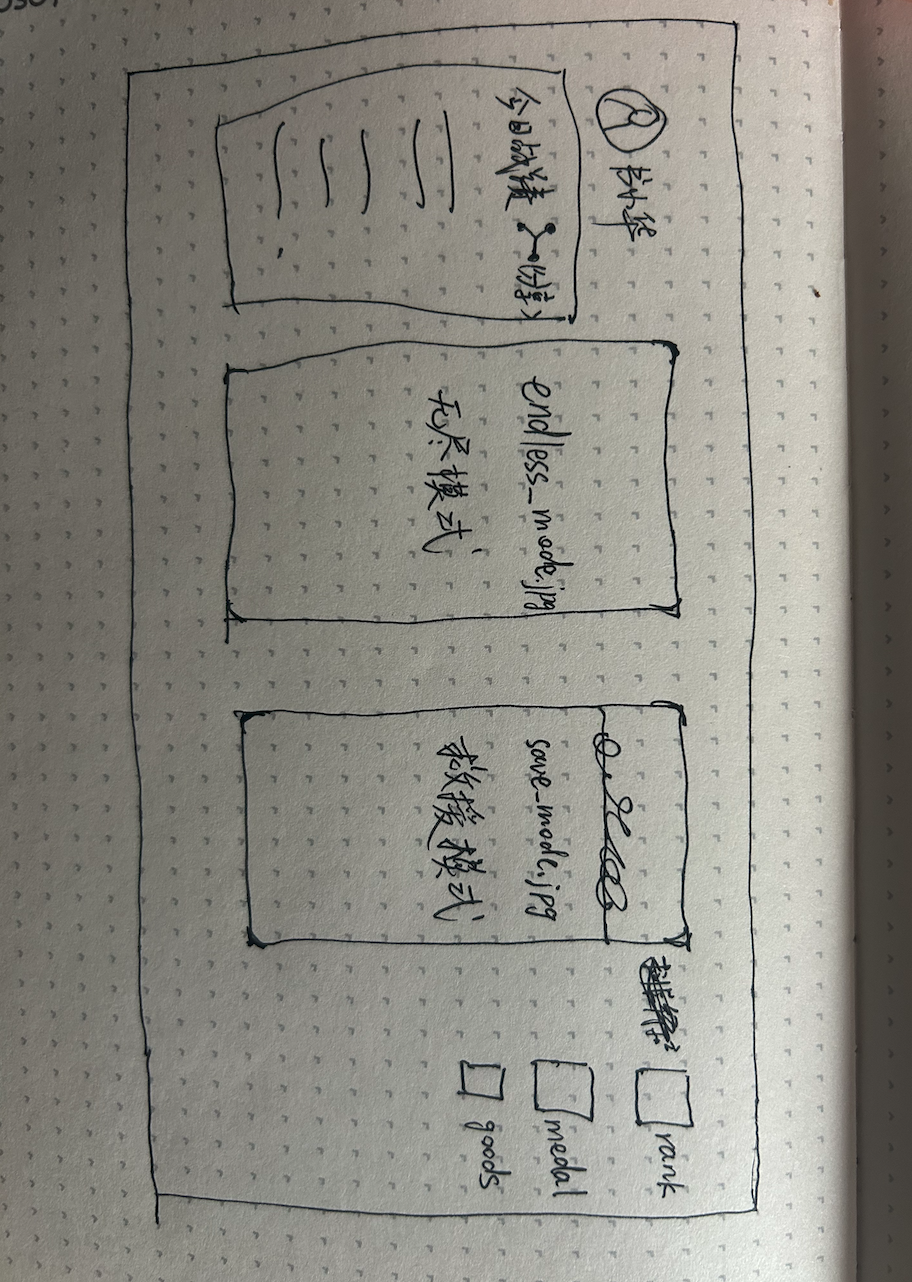 今日战绩 分享
endless_mode.jpg
无尽模式
save_mode.jpg
救援模式
rank
medal
goods